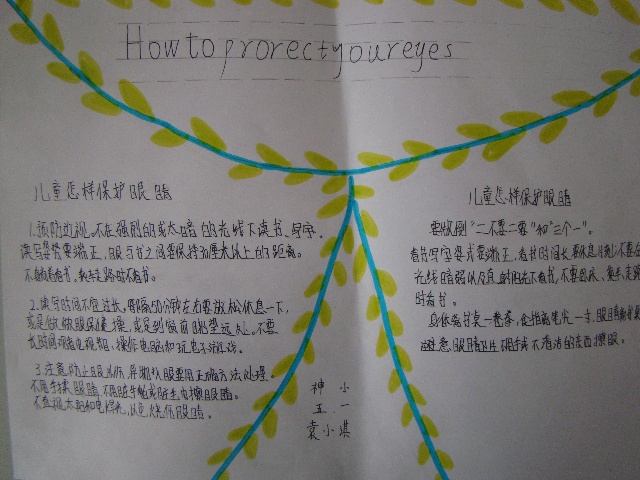 How to prorect your eyes
儿童怎样保护眼睛
1.预防近视。不在强烈的或太暗的光线下读书、写字。
读写姿势要端正，眼与书之间要保持30厘米以上的距离。
不躺着看书，乘车走路时不看书。
2.读写时间不宜过长。每隔50分钟左右要放松休息一下，
或是做做眼保健操，或是到窗前眺望远处。不要
长时间观看电视和操作电脑和玩电子游戏。
3.注意防止眼外伤，异物入眼要用正确方法处理。
不用手揉眼睛，不用脏手帕或脏毛巾擦眼睛。
不直视太阳和电焊光，以免烧伤眼睛。
神 小
五 一
袁小淇
儿童怎样保护眼睛
要做到"二不要二要"和"三个一"。
看书写字姿式要端正，看书时间长要休息片刻，不要在
光线暗弱以及直射阳光下看书，不要卧床、乘车、走路
时看书。
身体离书桌一拳，手指离笔尖一寸，眼睛离书本
避免眼睛 用 不清洁的东西擦眼。